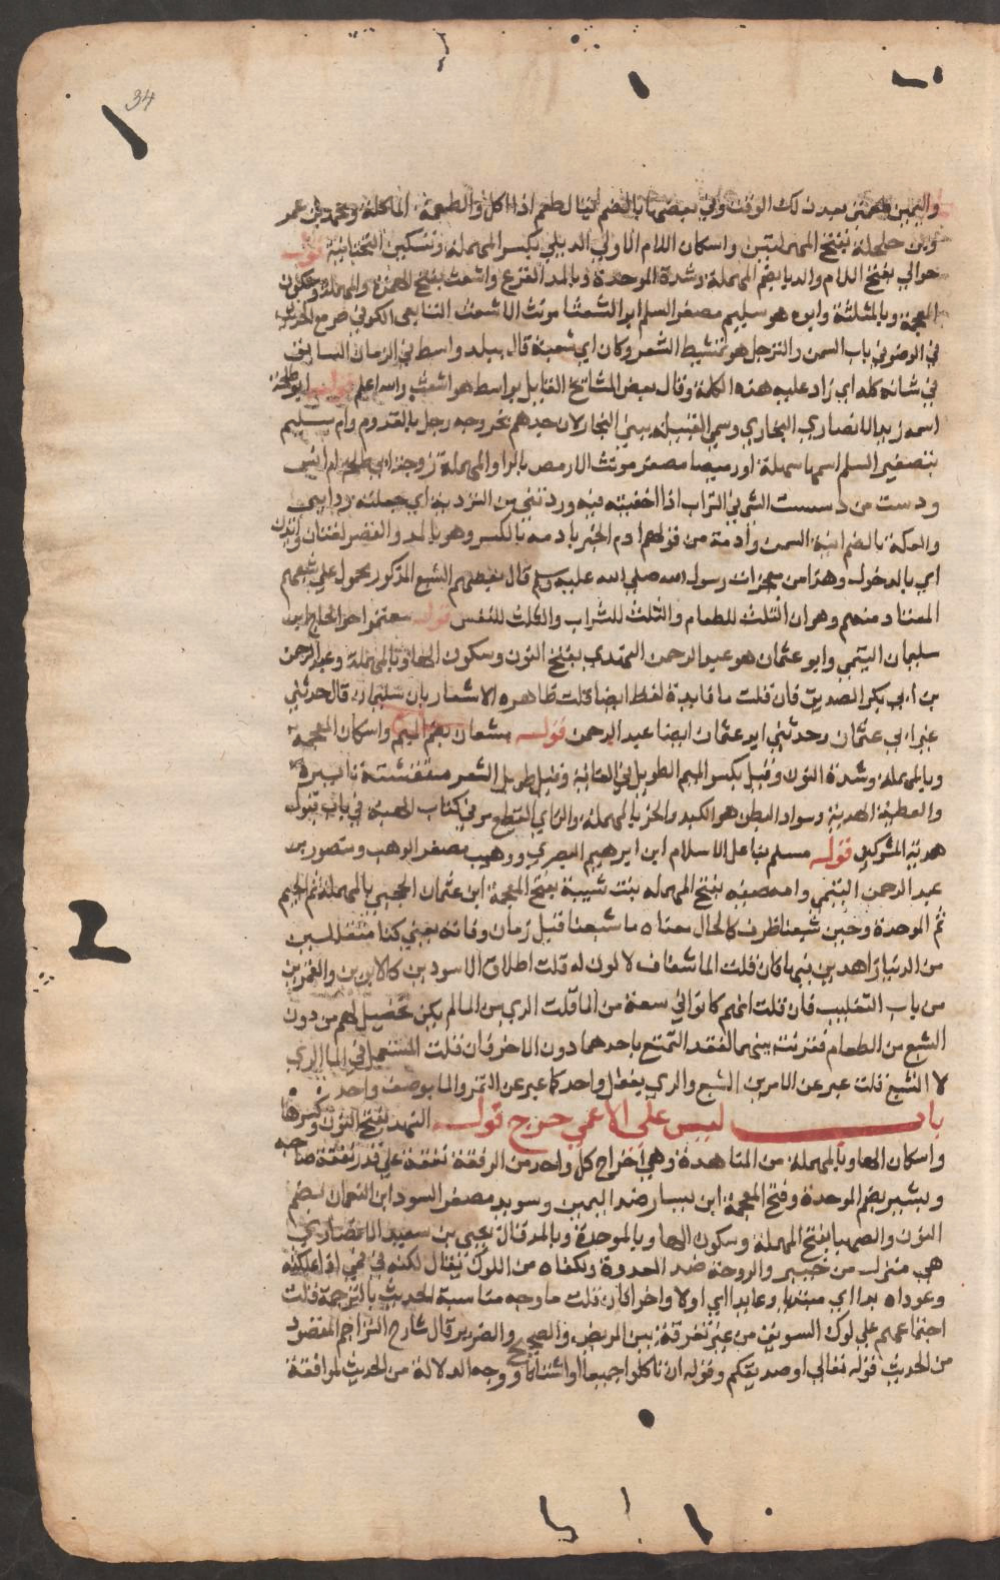 34
واليمين طعمتي بعد ذلك الوقت وفي بعضها بالضم يقال طعم اذا اكل والطعمة الماكلة ومحمد بن عمرو
وبن حلحلة بفتح المهملتين واسكان اللام الاولي الديلي بكسر المهملة وتسكين التحتانية قوله
حوالي بفتح اللام والدبا بضم المهملة وشدة الموحدة وبالمد القرع واشعث بفتح الهمزة والمهملة وسكون
المعجمة وبالمثلثة وابوه هو سليم مصغر السلم ابو الشعثا مونث الاشعث التابعي الكوفي مر مع الحديث
في الوضو في باب التيمن والترجل هو تمشيط الشعر وكان اي شعبة قال ببلد واسط في الزمان السابق
في شانه كله اي زاد عليه هذه الكلمة وقال بعض المشايخ القايل بواسط هو اشعث والله اعلم قوله ابو طلحة
اسمه زيد الانصاري البخاري وسمي القبيلة ببني النجار لان جدهم نجر وجه رجل بالقدوم وام سليم
بتصغير السلم اسمها سهلة او رميصا مصغر مونث الارمص بالرا والمهملة زوجة ابي طلحة ام انس
ودست من دسست الشي في التراب اذا اخفيته فيه وردتني من التردية اي جعلته ردا لي
والعكة بالضم انية السمن وادمة من قولهم ادم الخبز يادمه بالكسر وهو بالمد والقصر لغتان وايذن
اي بالدخول وهذا من معجزات رسول الله صلي الله عليه وسلم قال بعضهم الشبع المذكور محمول علي شبعهم
المعتاد منهم وهو ان الثلث للطعام والثلث للشراب والثلث للنفس قوله معتمر اخو الحاج ابن
سليمان التيمي وابو عثمان هو عبد الرحمن النهدي بفتح النون وسكون الها وبالمهملة وعبد الرحمن
بن ابي بكر الصديق فان قلت ما فايدة لفظ ايضا قلت ظاهره الاشعار بان سليمان قال حدثني
غير ابي عثمان وحدثني ابو عثمان ايضا عبد الرحمن قوله مشعان بضم الميم واسكان المعجمة
وبالمهملة وشدة النون وقيل بكسر الميم الطويل في الغاية وقيل طويل الشعر منتفشة ثايره
والعطية الهدية وسواد البطن هو الكبد والحز بالمهملة والزاي القطع مر في كتاب الهبة في باب قبول
هدية المشركين قوله مسلم بفاعل الاسلام ابن ابرهيم البصري ووهيب مصغر الوهب ومنصور بن
عبد الرحمن التيمي وامه صفيه بفتح المهمله بنت شيبة بفتح المعجمة ابن عثمان الحجبي بالمهملة ثم الجيم
ثم الموحدة وحين شبعنا ظرف كالحال معناه ما شبعنا قبل زمان وفاته يعني كنا متقللين
من الدنيا زاهدين فيها فان قلت الما شفاف لا لون له قلت اطلاق الاسودين كالابوين والقمرين
من باب التغليب فان قلت انهم كانوا في سعة من الما قلت الري من الما لم يكن تحصيل لهم من دون
الشبع من الطعام فقرنت بينهما لفقد التمتع باحدهما دون الاخر فان قلت المستعمل في الما الري
لا الشبع قلت عبر عن الامرين الشبع والري بفعل واحد كما عبر عن التمر والما بوصف واحد
باب ليس علي الاعمي حرج قوله النهد بفتح النون وكسرها
واسكان الها وبالمهملة من المناهدة وهي اخراج كل واحد من الرفقة نفقة علي قدر نفقة صاحبه
وبشير بضم الموحدة وفتح المعجمة ابن يسار ضد اليمين وسويد مصغر السود ابن النعمان بضم
النون والصهبا بفتح المهملة وسكون الها وبالموحدة وبالمد قال يحيي بن سعيد الانصاري
هي منزل من خيبر والروحة ضد الغدوة ولكناه من اللوك يقال لكته في فمي اذا علكته
وعودا وبدا اي مبتديا وعايدا اي اولا واخرا فان قلت ما وجه مناسبة الحديث بالترجمة قلت
اجتماعهم علي لوك السويق من غير تفرقة بين المريض والصحيح والضرير قال شارح التراجم المقصود
من الحديث قوله تعالي او صديقكم وقوله ان تاكلوا جميعا او اشتاتا ووجه الدلالة من الحديث لموافقة